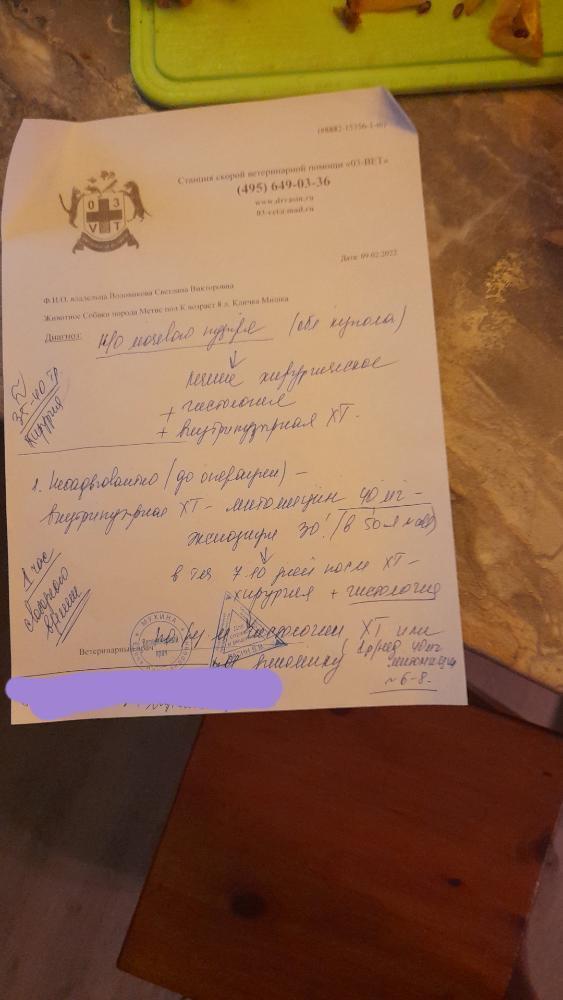 (68882-15356-1-в)
Станция скорой ветеринарной помощи «03-ВЕТ»
(495) 649-03-36
www.drvasin.ru
03-vet@mail.ru
0 3
V T
Дата: 09.02.2022
Ф.И.О. владельца Светлана Викторовна
Животное Собаки порода Метис пол К возраст 8 л. Кличка Мишка
Диагноз: Н/О мочевого пузыря (обл купола)
лечение хирургическое
+ гистология
+ внутрипузырная ХТ.
35-40 тр.
хирургия
1. Неоадъювантно (до операции) –
внутрипузырная ХТ – митомицин 40 мг –
экспозиция 30' (в 50
в теч 7-10 дней после ХТ –
хирургия + гистология
1 час
свободного
по рез-м гистологии ХТ или
1р/нед 40 мг
~ 6-8.
Ветеринарный врач
МУХИНА